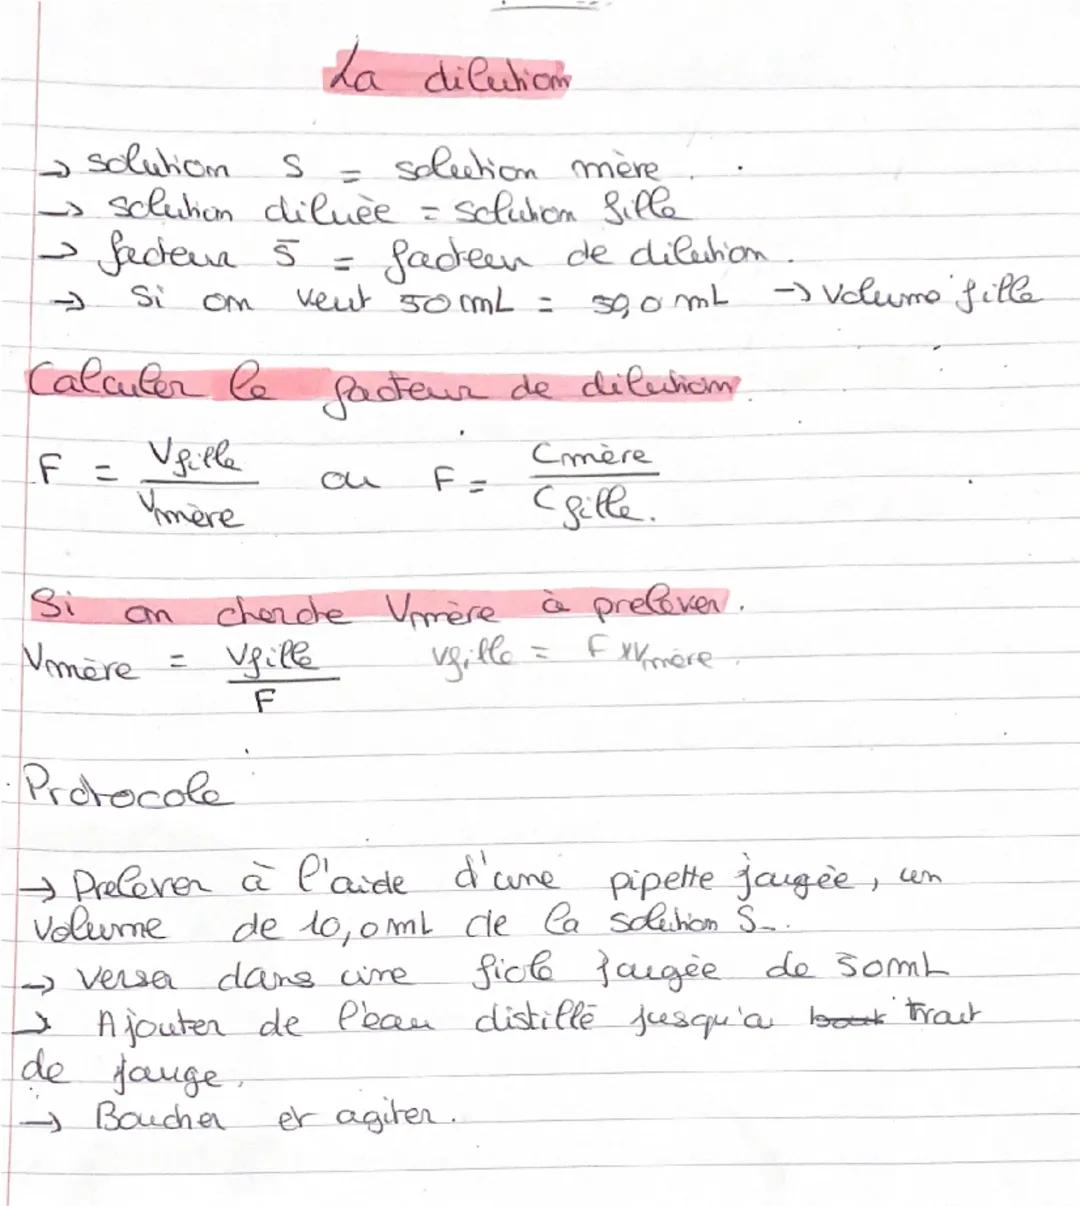 La dilution
→ solution S = solution mère.
→ solution diluèe = solution fille
→ facteur 5 = facteur de dilution.
→ Si on veut 50 mL = 50,0 mL → Volume fille
Calculer le facteur de dilution.
F = Vfille / Vmère ou F = Cmère / Cfille.
Si on cherche Vmère à prelever.
Vmère = Vfille / F Vfille = F x Vmère.
Protocole
→ Prelever à l'aide d'une pipette jaugèe, un
volume de 10,0 mL de la solution S.
→ Verser dans une fiole jaugèe de 50mL
→ Ajouter de l'eau distillé jusqu'a trait
de jauge.
→ Boucher et agiter.